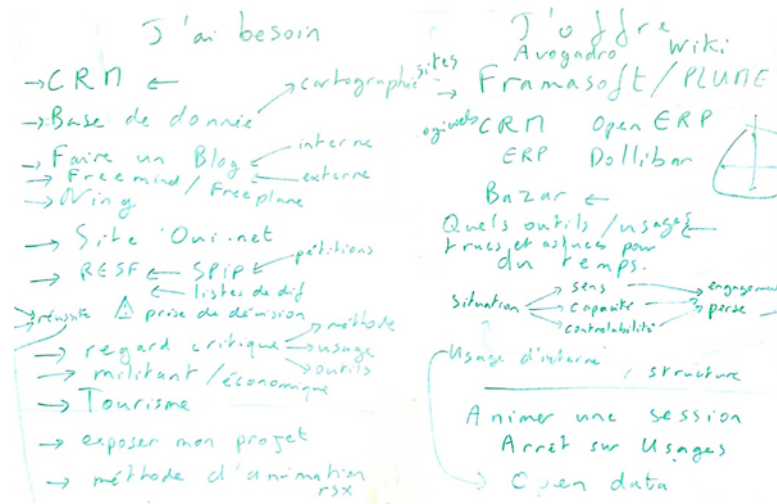 J'ai besoin
→ CRM ←
→ Base de donnée → cartographie
→ Faire un Blog ← interne
← externe
→ Freemind / Freeplane
→ Ning
→ Site Oui.net
→ RESF ← SPIP ← pétitions
← listes de dif
→ réussite ⚠ prise de démision
→ regard critique → méthode
→ usage
→ outils
→ militant / économique
→ Tourisme
→ exposer mon projet
→ méthode d'animation
rsx
J'offre
Avogadro Wiki
sites
→ Framasoft / PLUME
ogiciels CRM Open ERP
ERP Dollibar
Bazar ←
Quels outils / usages ←
trucs et astuces pour
du temps.
situation → sens → engagemen
→ capacité → perse
→ controlabilité
Usage d'interne
/ structure
Animer une session
Arrêt sur Usages
→ Open data